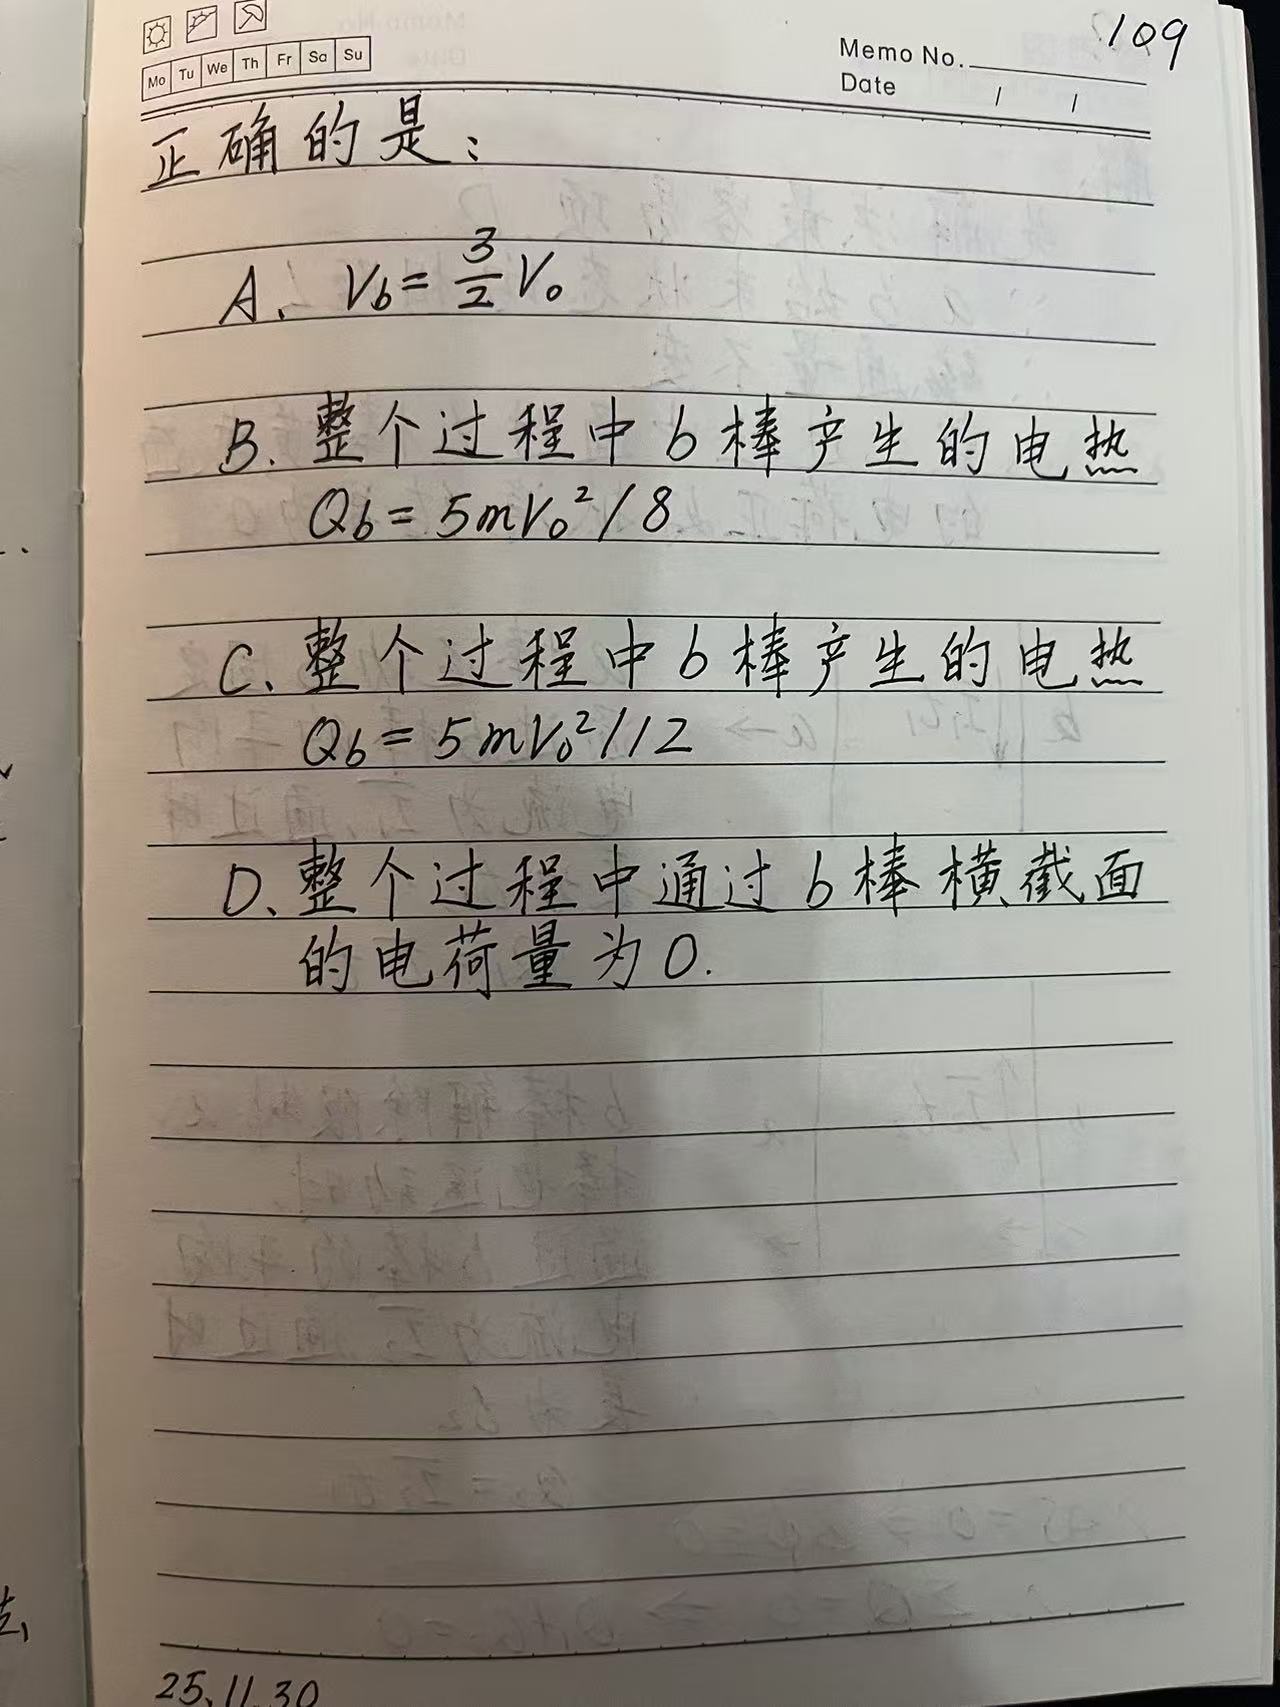 109
Memo No.
Mo Tu We Th Fr Sa Su
Date / /
正确的是：
A、V_b = 3/2 V_0
B. 整个过程中b棒产生的电热
Q_b = 5mV_0²/8
C、整个过程中b棒产生的电热
Q_b = 5mV_0²/12
D、整个过程中通过b棒横截面
的电荷量为0.
25.11.30